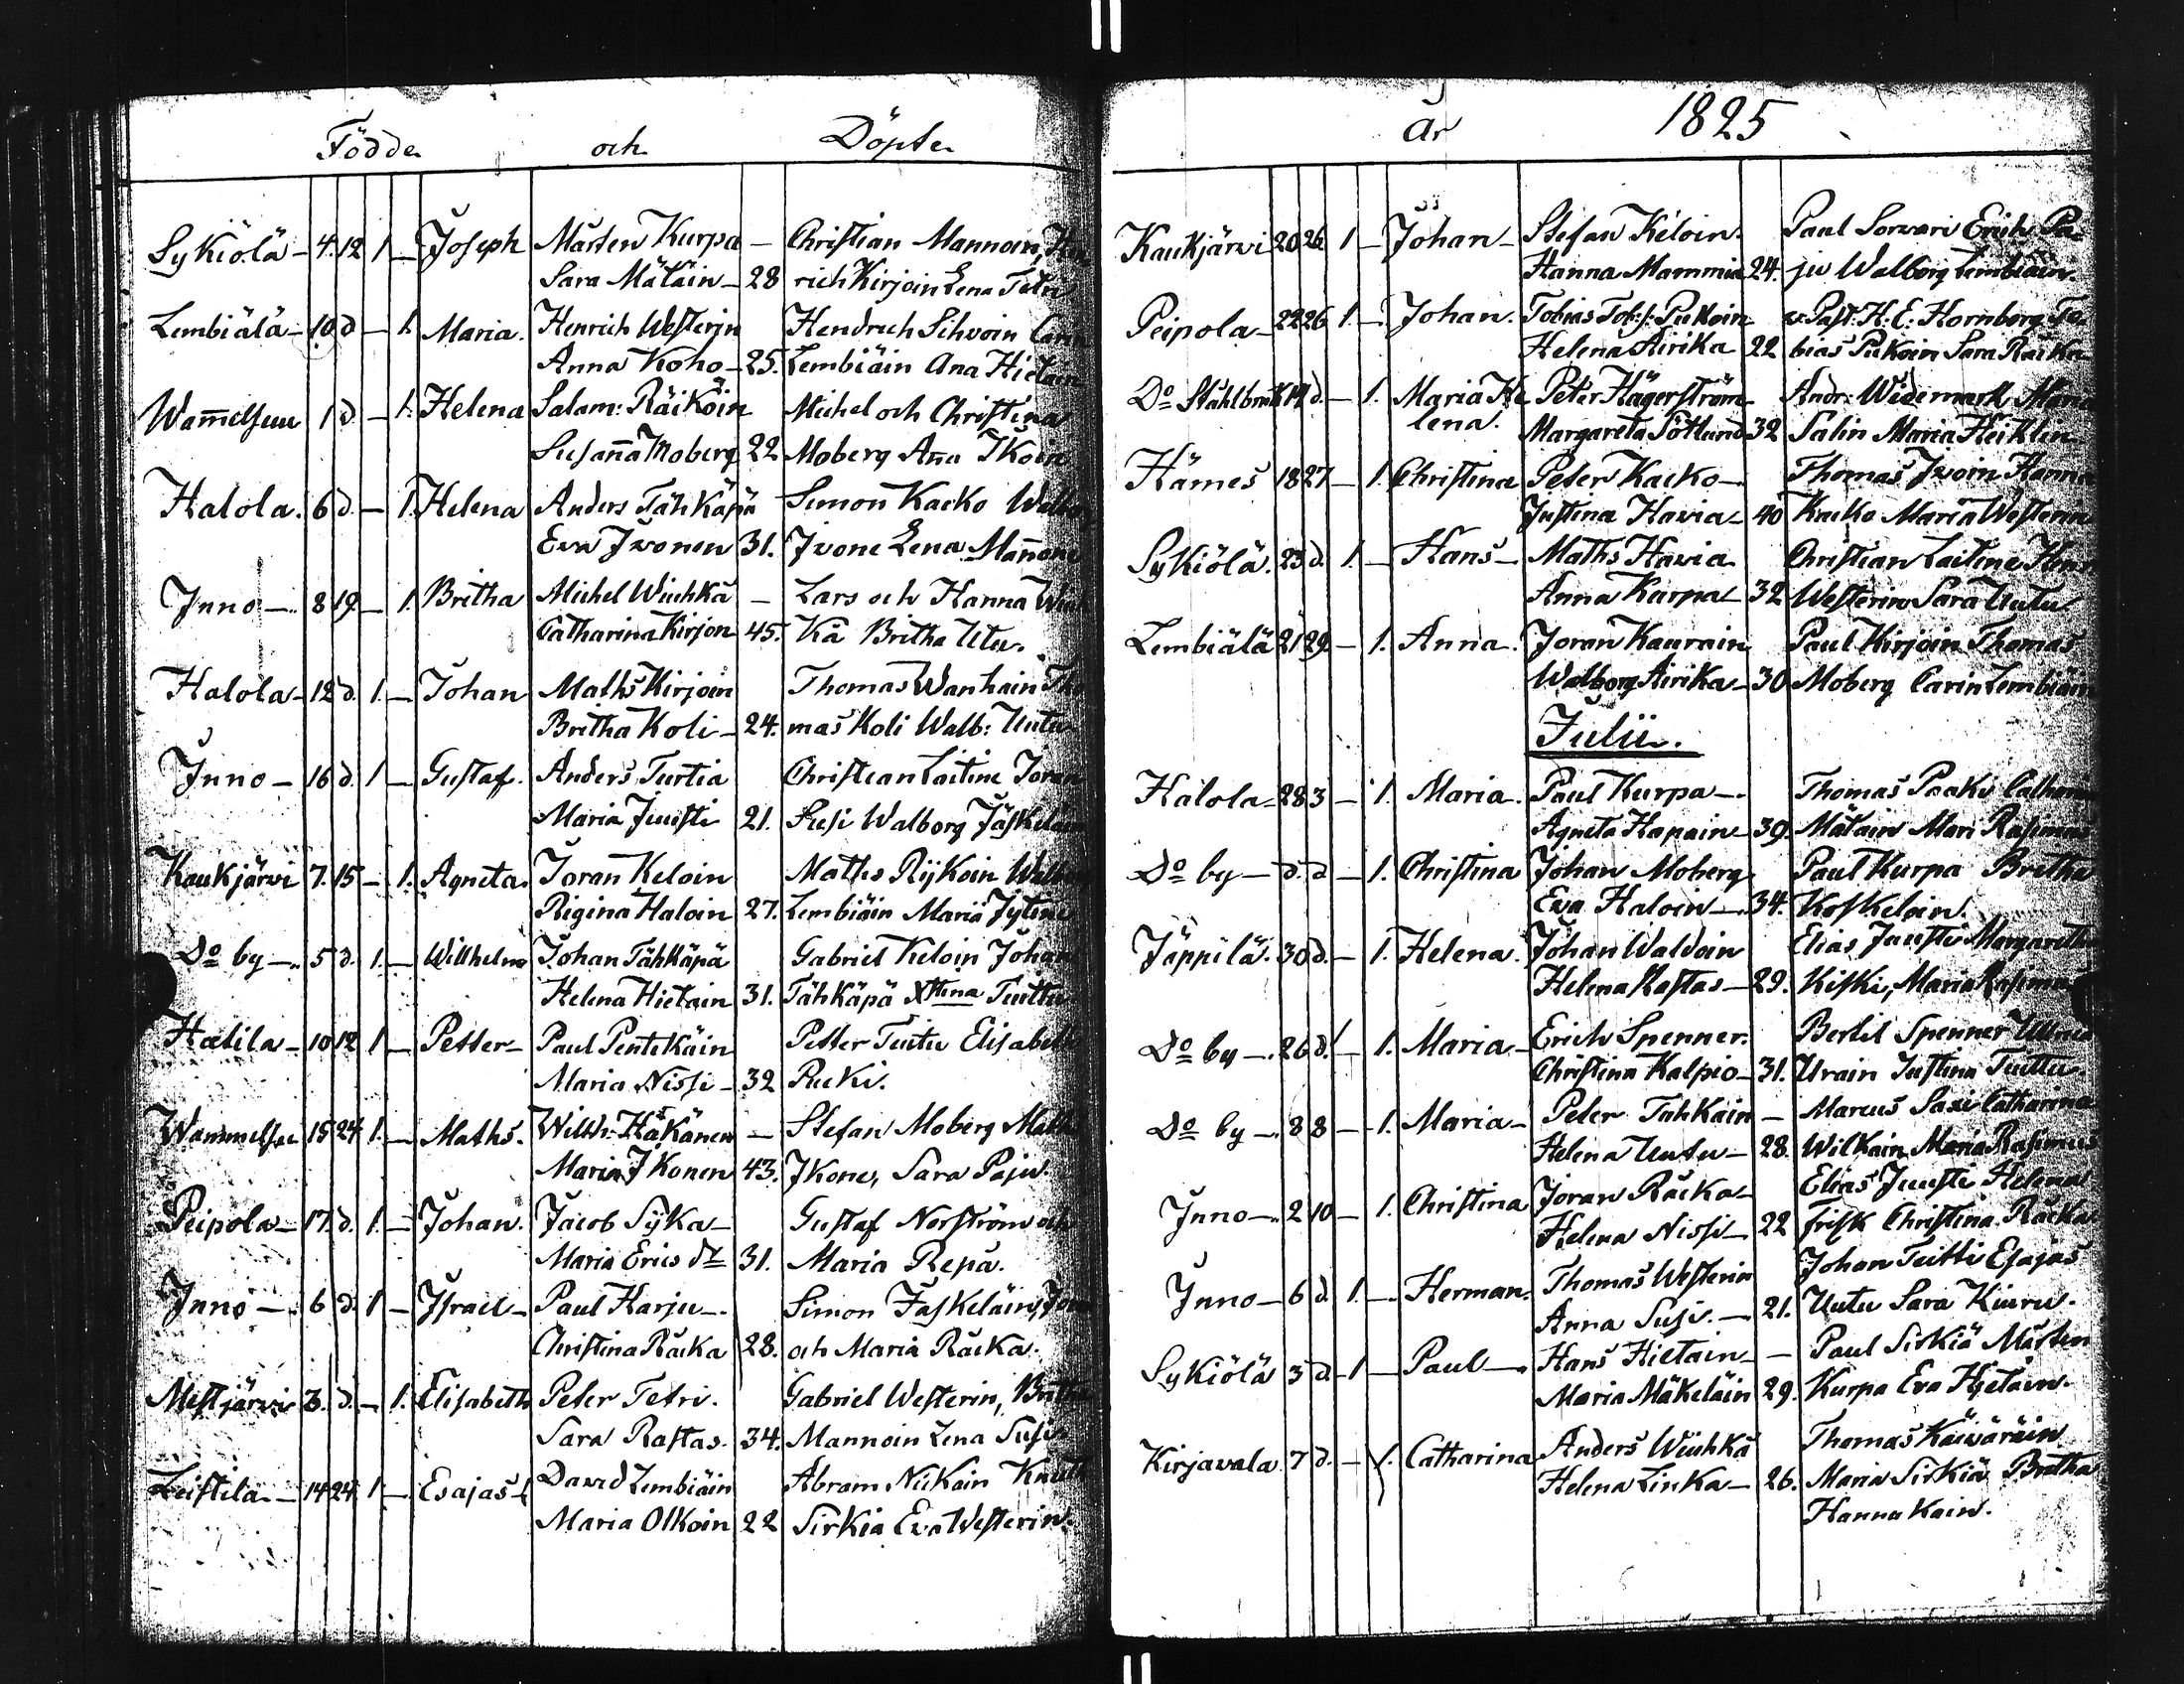 Födde och Döpte
Sykiölä - 4. 12 1 - Joseph Mårten Kurpa - Christian Mannoin, Hen
Sara Mätäin - 28 rich Kirjoin Lena Tetri
Lembiälä - 10 d - 1. Maria. Henrich Westerin Hendrich Sihvoin Carin
Anna Koho - 25. Lembiäin Ana Hietain
Wam̅elsuu 1 d - 1. Helena Salom: Räiköin Michel och Christina
Susan̅a Moberg 22 Moberg An̅a Ikoin
Halola. 6 d. - 1. Helena Anders Tähkäpä Simon Kacko Walbo
Eva Ivonen 31. Ivone Lena Man̅one
Inno - 8 19 - 1. Britha Michel Wiuhkä - Lars och Hanna Wiuh
Catharina Kirjon 45. kä Britha Utu.
Halola - 12 d. 1. - Johan Maths Kirjoin Thomas Wanhain Tho
Britha Koli - 24. mas Koli Walb: Uutu
Inno - 16 d. 1 - Gustaf. Anders Turtia Christian Laitine Joran
Maria Juusti 21. Susi Walborg Jäskeläin
Kaukjärvi 7. 15 - 1. Agneta. Joran Keloin Maths Rijkoin Walborg
Rigina Haloin 27. Lembiäin Maria Jytine
Do by - 5 d. 1. - Willhelm Johan Tähkäpä Gabriel Keloin Johan
Helena Hietain 31. Tähkäpä Xtina Tuittu
Hatila - 10 12 1 - Petter - Paul Pentikäin Petter Tuitu Elisabeth
Maria Nissi - 32 Pucki.
Wammelsuu 15 24 1. - Maths. Willh: Häkänen - Stefan Moberg Maths
Maria Ikonen 43. Ikone, Sara Paju.
Peipola - 17. d. 1. - Johan. Jacob Syka - Gustaf Norström och
Maria Erics dr 31. Maria Repa.
Inno - 6 d. 1 - Israel - Paul Harju - Simon Jäskeläin, Joran
Christina Räcka 28. och Maria Räcka.
Mestjärvi 3. d. - 1. Elisabeth Peter Tetri. Gabriel Westerin, Britha
Sara Rastas. 34. Mannoin Lena Susi.
Leistila - 14 24 1 - Esajas David Lembiäin Abram Niikain Knuth
Maria Olkoin 22 Sirkia Eva Westerin.
År 1825
Kaukjärvi 20 26 1 - Johan - Stefan Keloin. Paul Sorvari Erich Pa
Hanna Mammia 24. ju Walborg Lembiäin.
Peipola - 22 26 1. - Johan. Tobias Tob:s: Pukoin v. Past. H: E: Hornborg To
Helena Airika 22 bias Pukoin Sara Räcka
Do Stählbruk 14 d. - 1. Maria He Peter Hägerström Andr: Widemark Maria
lena. Margareta Sötlund 32 Salin Maria Heiklin
Hämes 18 27 - 1. Christina Peter Kacko - Thomas Ivoin Hanna
Justina Havia - 40 Kacko Maria Westerin
Sykiölä. 23 d. 1. - Hans - Maths Havia Christian Laitine Hans
Anna Kurpa - 32 Westerin Sara Uutu
Lembiälä 21 29 - 1. Anna. Joran Kaurain Paul Kirjoin Thomas
Walborg Airika - 30 Moberg Carin Lembiäin
Julii.
Halola - 28 3 - 1. Maria. Paul Kurpa - Thomas Paaki Catharin
Agneta Hapaine 39. Mätäin Mari Rasimus
Do by - d. d - 1. Christina Johan Moberg Paul Kurpa Britha
Eva Haloin - 34. Koskeloin.
Jäppilä. 30 d. - 1. Helena. Johan Waldoin Elias Juusti Margaretha
Helena Rastas - 29. Kiski, Maria Rasimus
Do by - 26 d. - 1. Maria - Erich Spenner. Bertil Spenner
Christina Kalpio - 31. Urain Justina Tuittu
Do by - 8 8 - 1. Maria - Peter Tahkain - Marcus Saxe Catharina
Helena Uutu - 28. Wilkain Maria Rasimus
Inno - 2 10 - 1. Christina Joran Räcka - Elias Juusti Helena
Helena Nissi - 22 Frisk Christina Räcka
Inno - 6 d. 1. - Herman. Thomas Westerin Johan Teitti Esajas
Anna Susi. - 21. Uutu Sara Kiuru.
Sykiölä 3 d - 1 - Paul - Hans Hietain - - Paul Sirkiä Mårten
Maria Mäkeläin 29. Kurpa Eva Hietain.
Kirjavala 7 d. - 1. Catharina Anders Wiuhkä Thomas Käiväräin
Helena Linka - 26. Maria Sirkiä Britha
Hannukain.